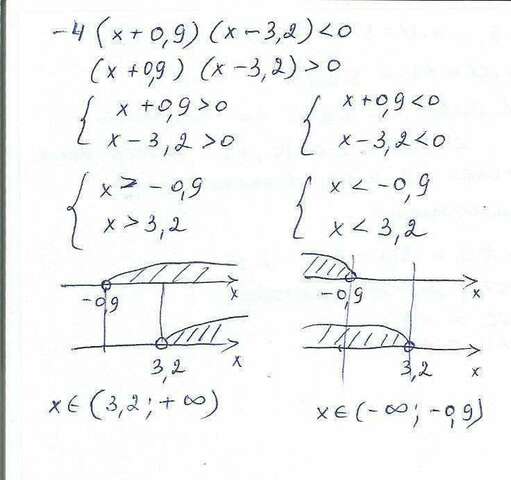 -4(x+0,9)(x-3,2)<0
(x+0,9)(x-3,2)>0
{ x+0,9>0 { x+0,9<0
x-3,2>0 x-3,2<0
{ x>-0,9 { x<-0,9
x>3,2 x<3,2
-0,9 x -0,9 x
3,2 x 3,2 x
x∈(3,2;+∞) x∈(-∞;-0,9)